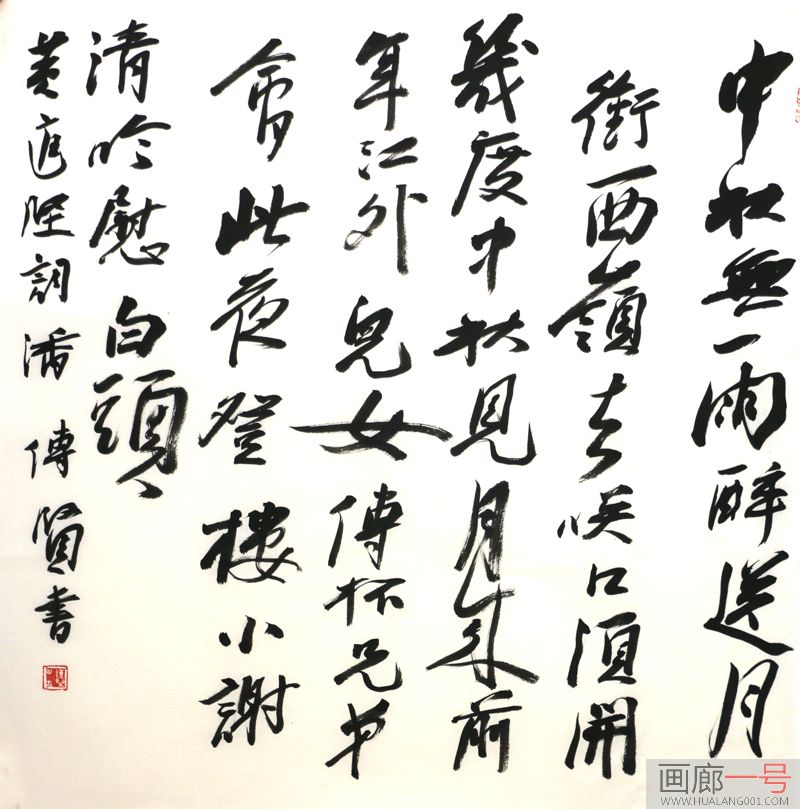 中秋無雨醉送月
銜西嶺去咲口須開
幾度中秋見月來前
年江外兒女傳杯兄弟
會此夜登樓小謝
清吟慰白頭
黄庭堅詞潘傳賢書
画廊一号
WWW.HUALANG001.COM